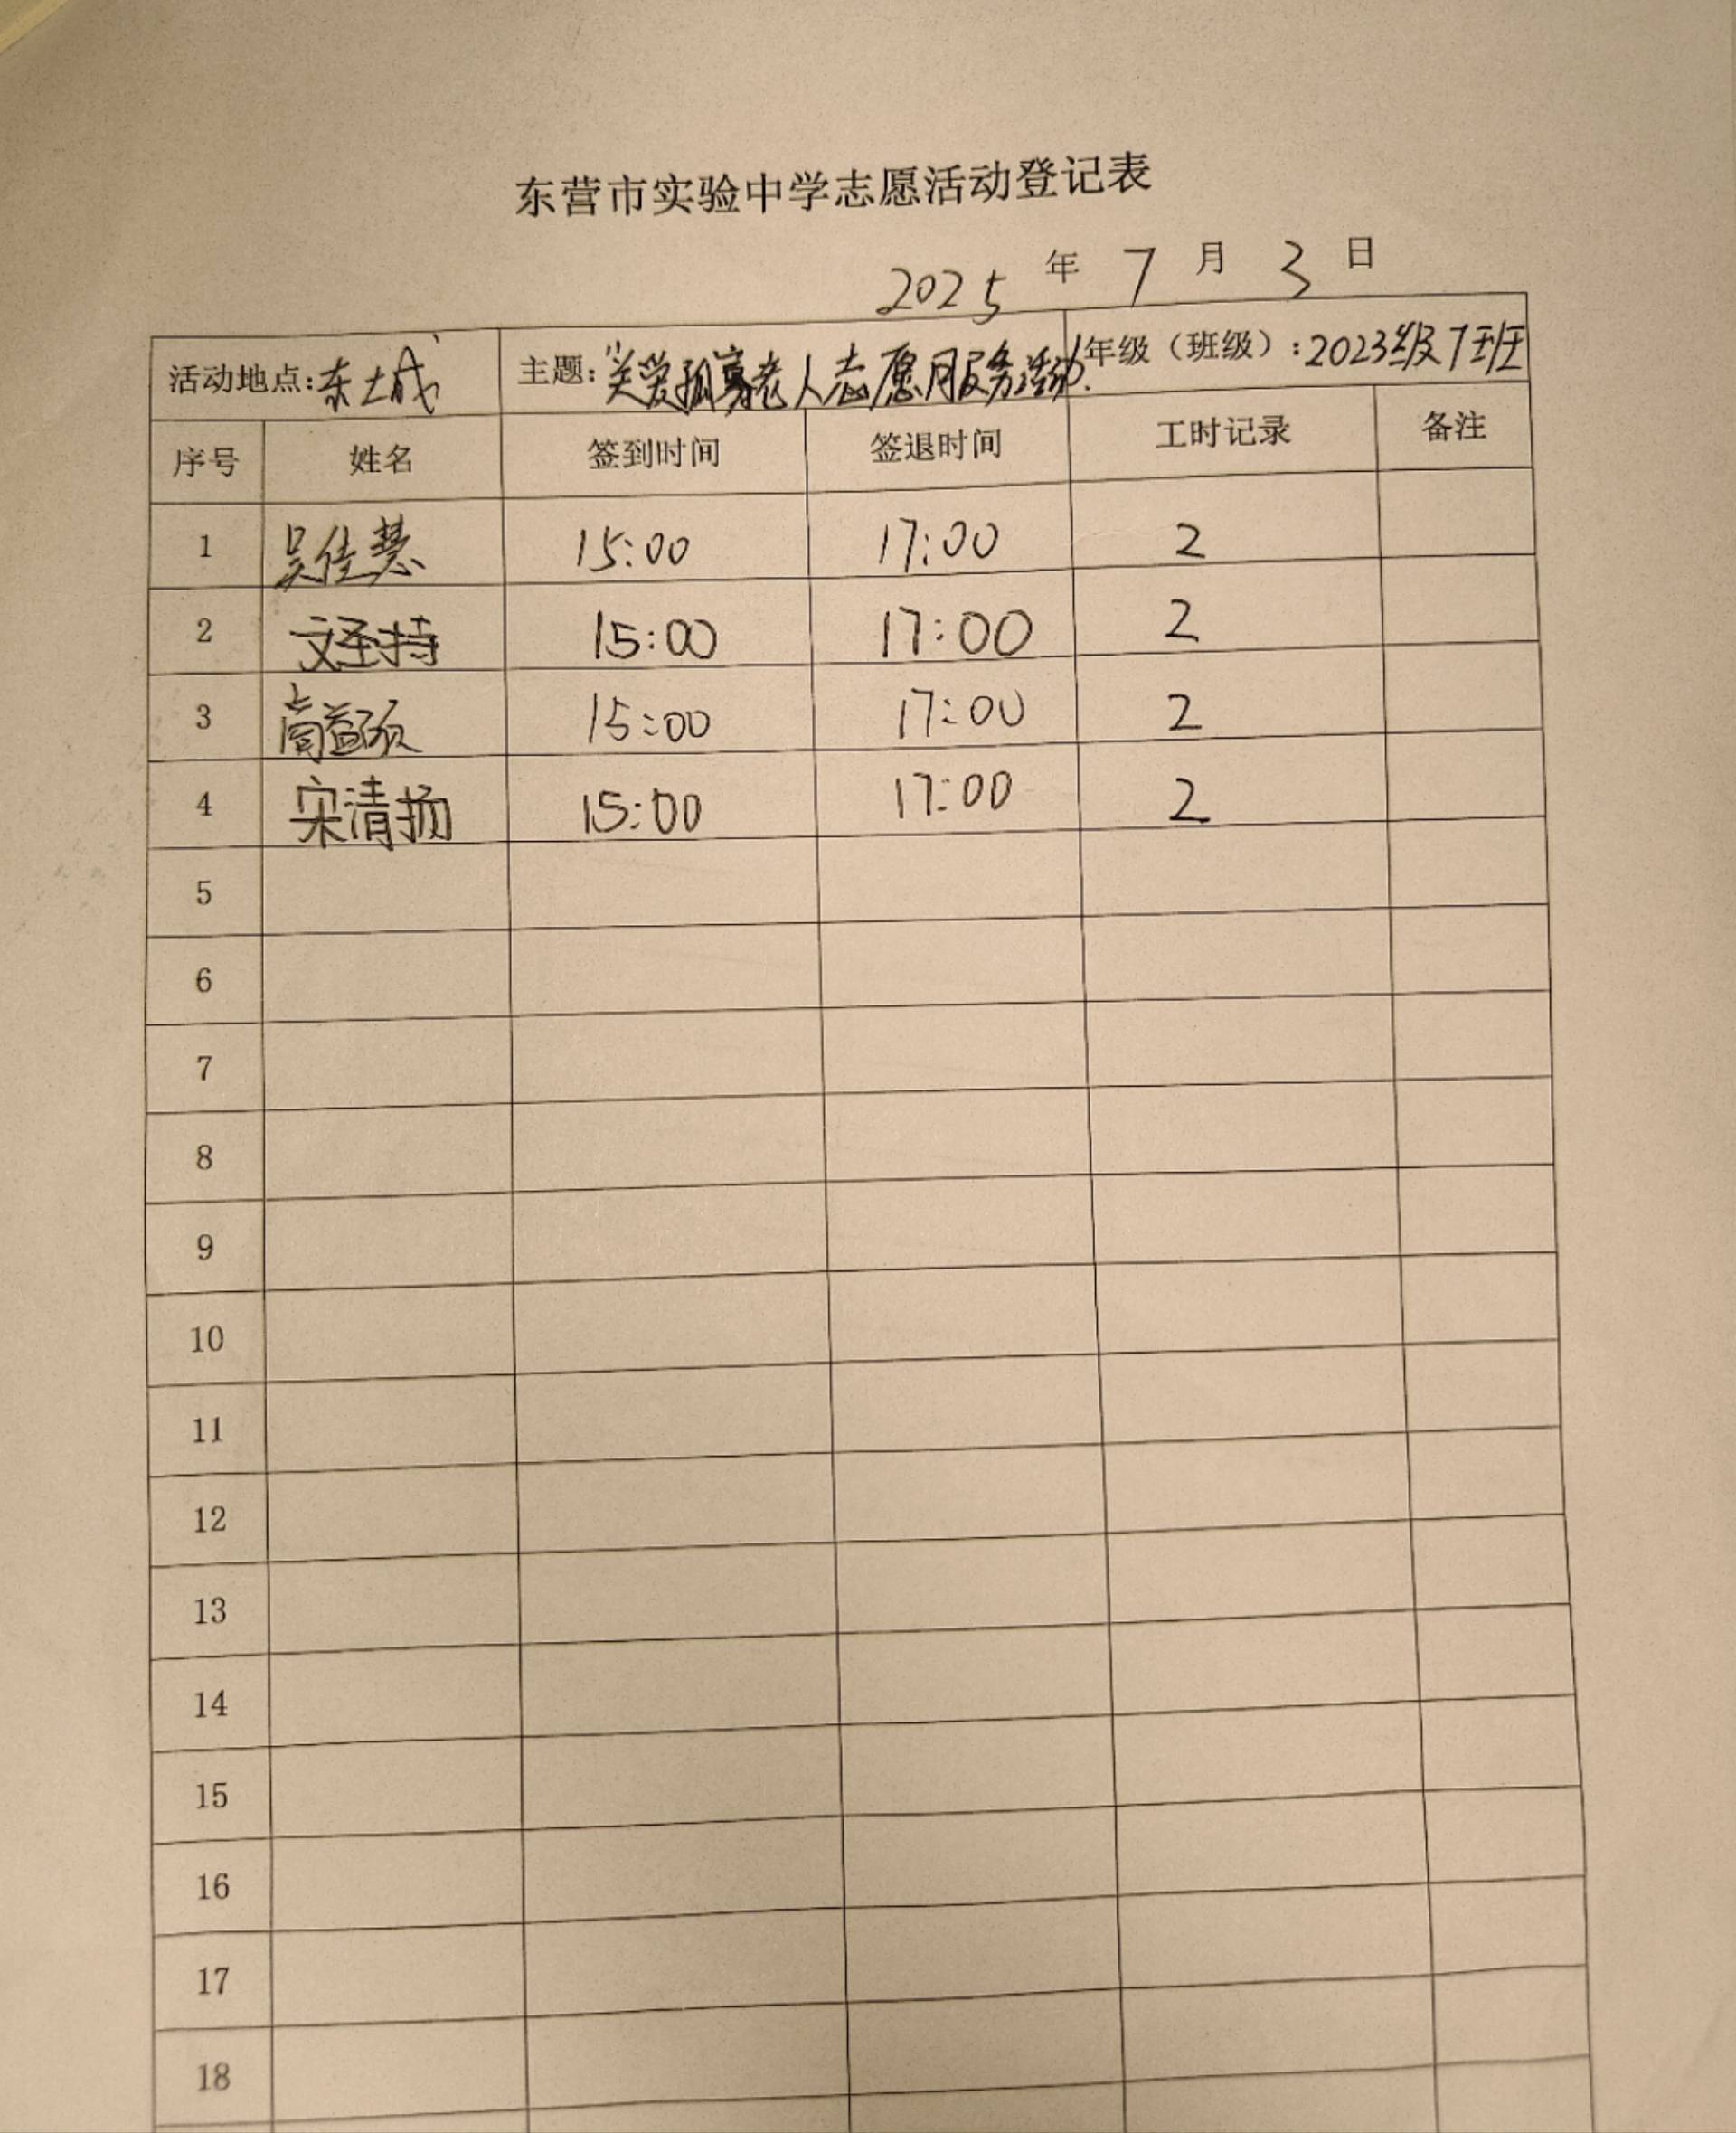 东营市实验中学志愿活动登记表
2025 年 7 月 3 日
活动地点:东城 主题:关爱孤寡老人志愿服务活动. 年级（班级）:2023级7班
序号 姓名 签到时间 签退时间 工时记录 备注
1 吴佳慧 15:00 17:00 2
2 文圣持 15:00 17:00 2
3 15:00 17:00 2
4 宋清扬 15:00 17:00 2
5
6
7
8
9
10
11
12
13
14
15
16
17
18